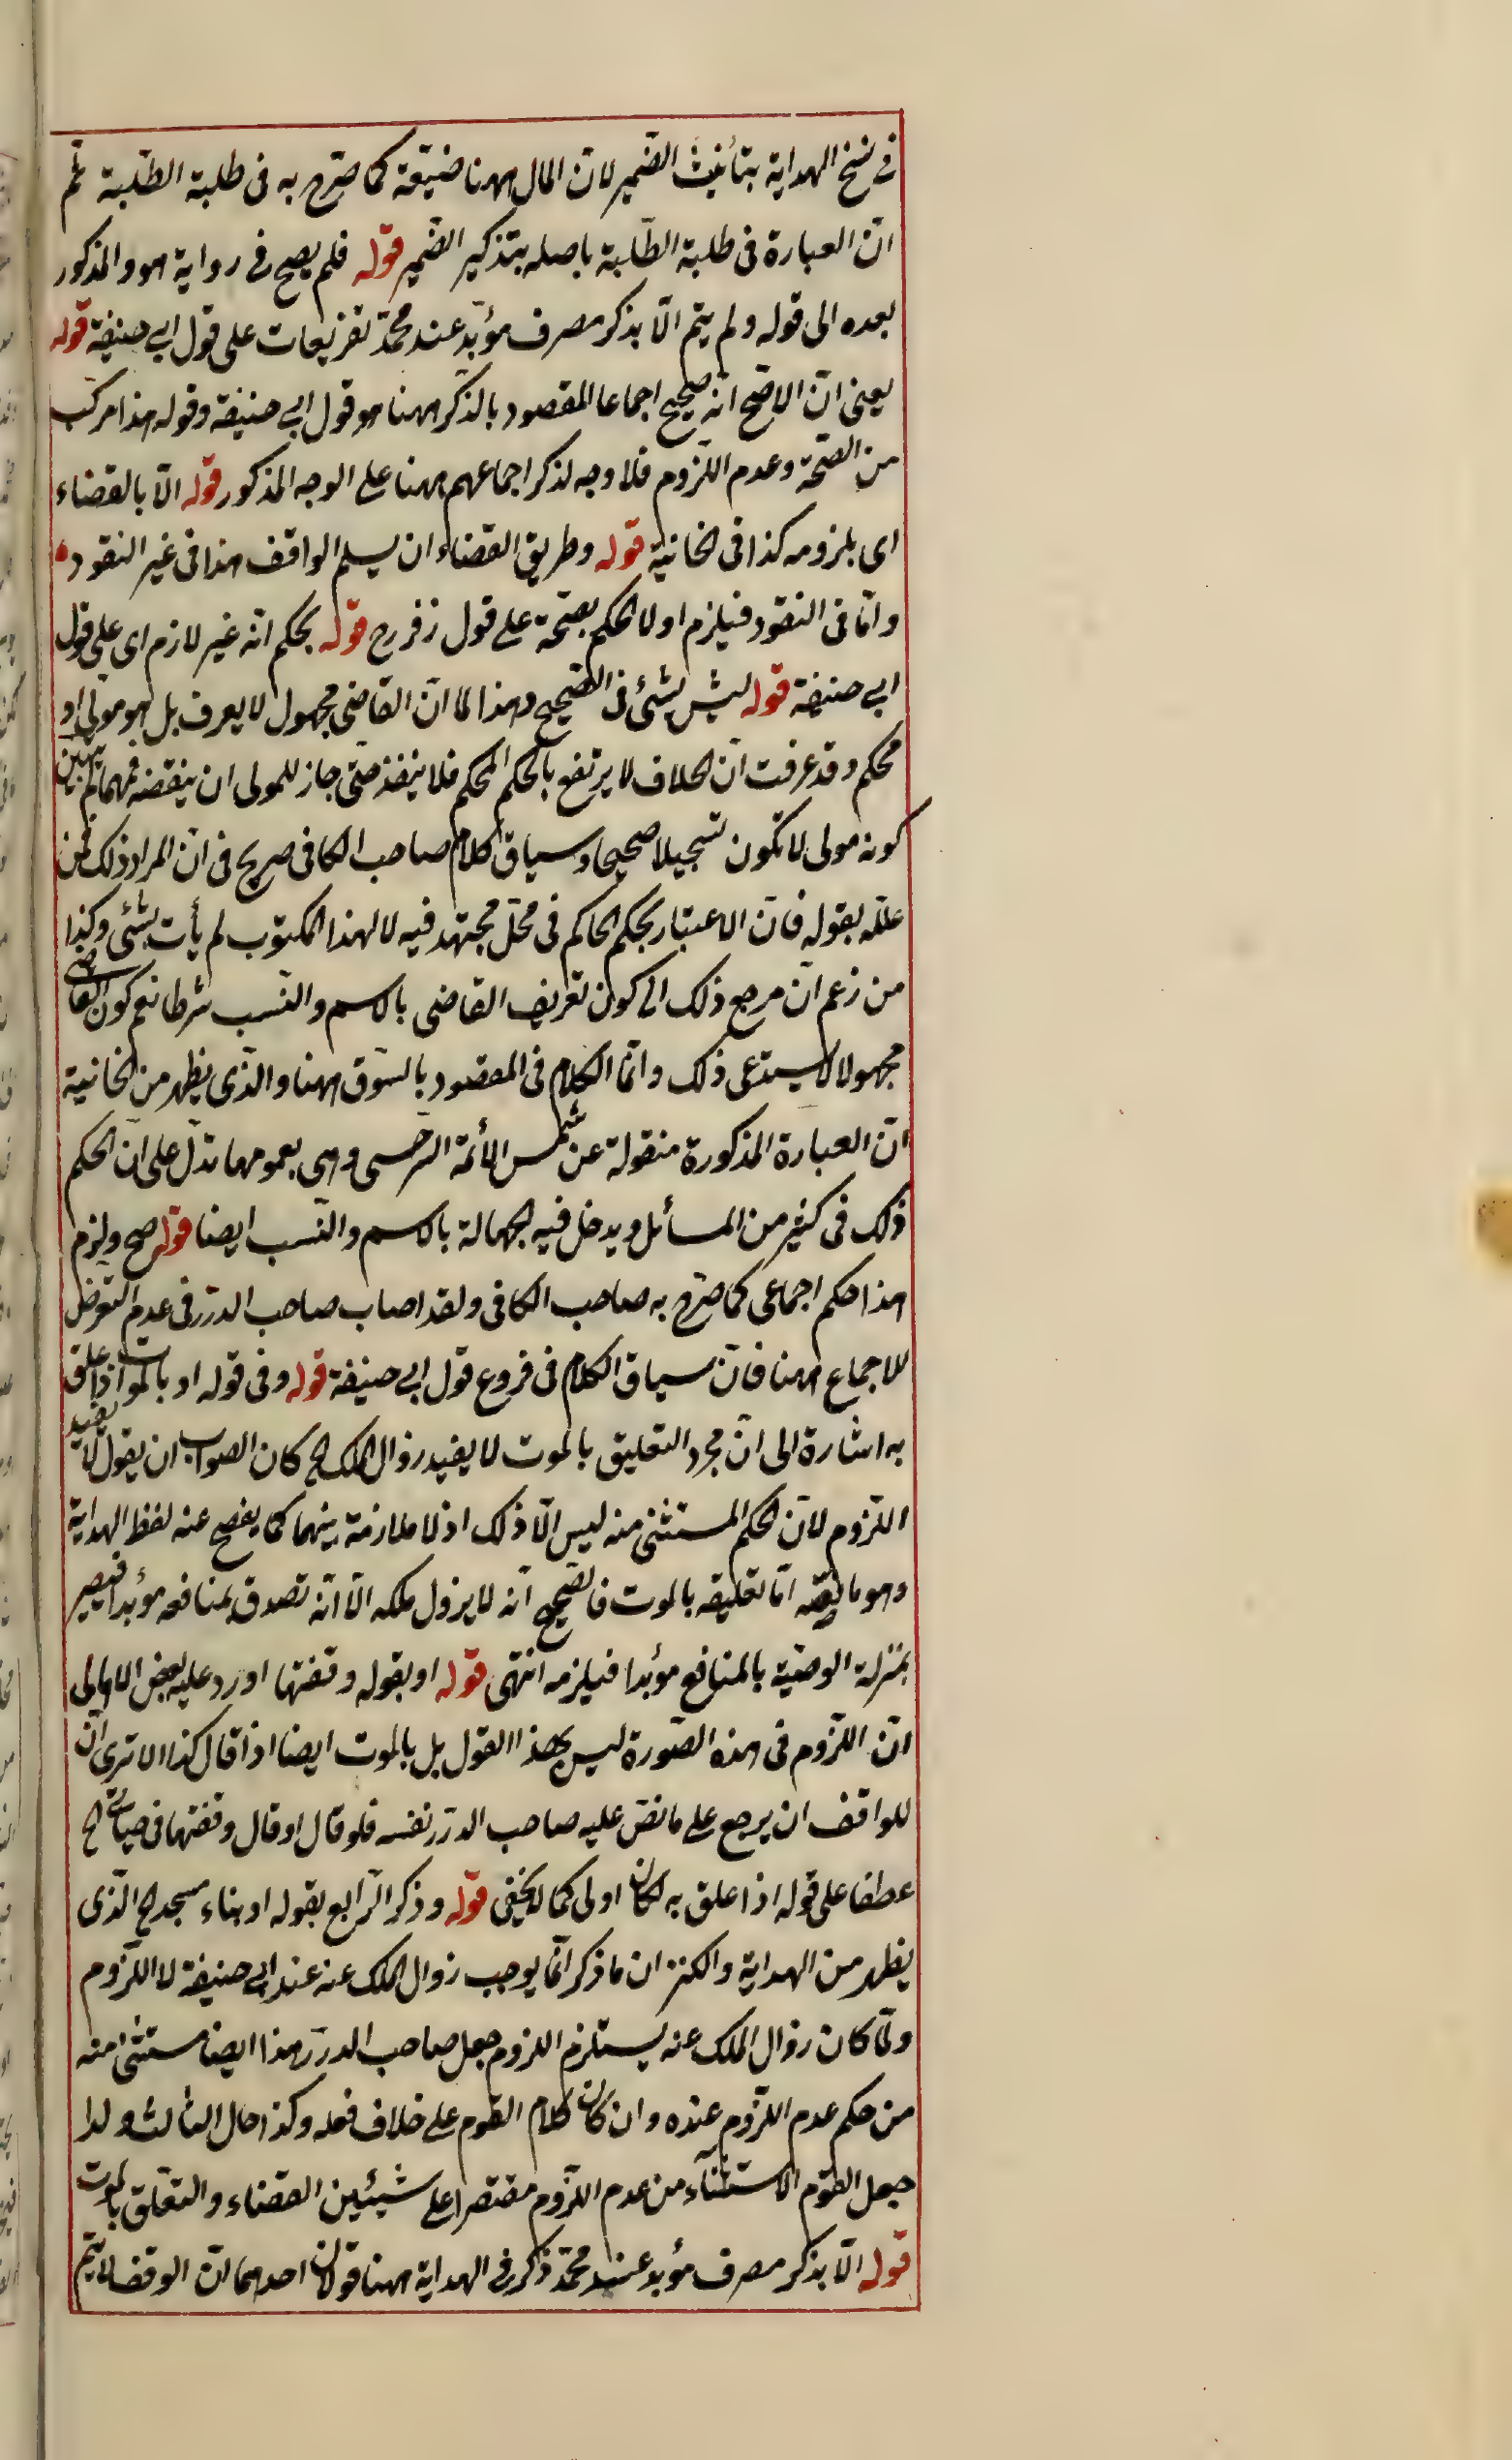 فى نسخ الهداية بتأنيث الضمير لانّ المال ههنا ضيعة كما صرّح به فى طلبة الطلبة ثم
انّ العبارة فى طلبة الطلبة باصله بتذكير الضمير قوله فلم يصح فى رواية هو والمذكور
بعده الى قوله ولم يتم الّا بذكر مصرف مؤبّد عند محمّد تفريعات على قول ابى حنيفة قوله
يعنى انّ الاصحّ انّه صحيح اجماعا المقصود بالذكر ههنا هو قول ابى حنيفة وقوله هذا مركب
من الصّحّة وعدم اللّزوم فلا وجه لذكر اجماعهم ههنا على الوجه المذكور قوله الّا بالقضاء
اى بلزومه كذا فى الخانية قوله وطريق القضاء ان يسلم الواقف هذا فى غير النقود
وامّا فى النقود فيلزم اولا الحكم بصحّته على قول زفر رح قوله بحكم انّه غير لازم اى على قول
ابى حنيفة قوله ليس بشئ فى الصّحيح وهذا لما انّ القاضى مجهول لا يعرف بل هو مولى او
محكم وقد عرفت انّ الخلاف لا يرتفع بالحكم المحكم فلا ينفذ حتّى جاز للمولى ان ينقضه فمهما لم يتبين
كونه مولى لا تكون تسجيلا صحيحا وسياق كلام صاحب الكافى صريح فى انّ المراد ذلك فمن
علّله بقوله فانّ الاعتبار بحكم الحاكم فى محلّ مجتهد فيه لا لهذا المكتوب لم يأت بشئى وكذا
من زعم انّ مرجع ذلك الى كون تعريف القاضى بالاسم والنّسب شرطا نعم كون القاضى
مجهولا لا يستدعى ذلك وانّما الكلام فى المقصود بالسّوق ههنا والّذى يظهر من الخانية
انّ العبارة المذكورة منقولة عن شمس الأئمة السّرخسى وهى بعمومها تدلّ على ان الحكم
ذلك فى كثير من المسائل ويدخل فيه الجهالة بالاسم والنّسب ايضا قوله صح ولزم
هذا حكم اجماعى كما صرّح به صاحب الكافى ولقد اصاب صاحب الدرر فى عدم التعرّض
للاجماع ههنا فانّ سياق الكلام فى فروع قول ابى حنيفة قوله وفى قوله او بالموت اذا علق
به اشارة الى انّ مجرد التعليق بالموت لا يفيد زوال الملك الخ كان الصواب ان يقول لا يفيد
اللّزوم لانّ الحكم المستثنى منه ليس الّا ذلك اذ لا ملازمة بينهما كما يفصح عنه لفظ الهداية
وهو ما نصّه امّا تعليقه بالموت فالصّحيح انّه لا يزول ملكه الّا انّه تصدق بمنافعه مؤبدا فيصير
بمنزلة الوصيّة بالمنافع مؤبدا فيلزمه انتهى قوله او بقوله وقفتها اورد عليه بعض الاهالى
انّ اللّزوم فى هذه الصّورة ليس بهذا القول بل بالموت ايضا اذا قال كذا الا ترى انّ
للواقف ان يرجع على ما نصّ عليه صاحب الدرر نفسه فلو قال او قال وقفتها فى حياتى الخ
عطفا على قوله اذا علق به لكان اولى كما لا يخفى قوله وذكر الرّابع بقوله او بناء مسجد الخ الّذى
يظهر من الهداية والكنز ان ما ذكر انّما يوجب زوال الملك عنه عند ابى حنيفة لا اللّزوم
ولمّا كان زوال الملك عنه يستلزم اللزوم جعل صاحب الدرر هذا ايضا مستثنى منه
من حكم عدم اللّزوم عنده وان كان كلام القوم على خلاف فعله وكذا حال الثالث ولذا
جعل القوم الاستثناء من عدم اللّزوم مقتصرا على شيئين القضاء والتعلّق بالموت
قوله الّا بذكر مصرف مؤبد عند محمّد ذكر فى الهداية ههنا قولان احدهما انّ الوقف لا يتم